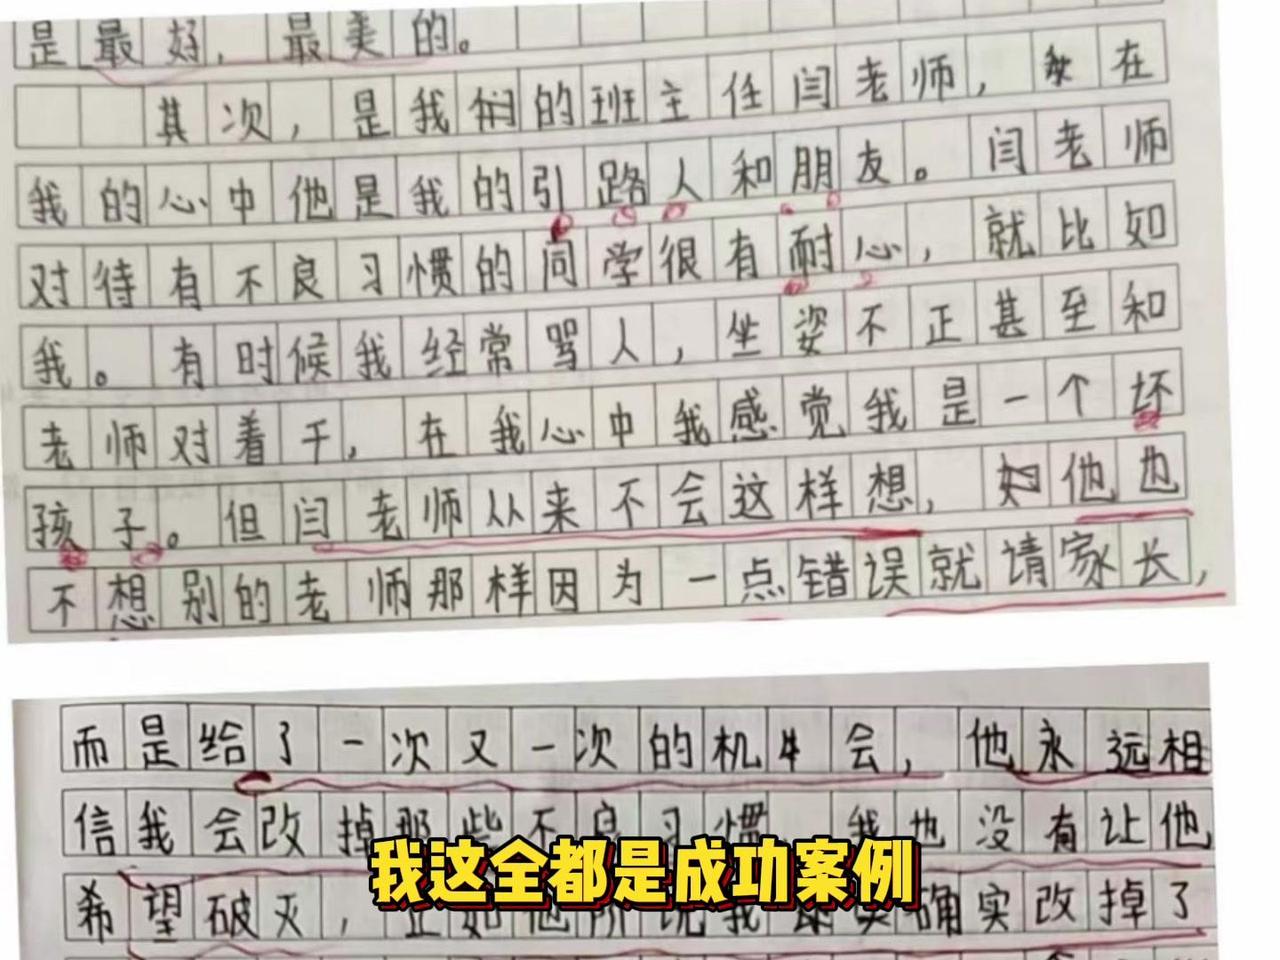 是最好，最美的。
其次，是我们的班主任闫老师，在
我的心中他是我的引路人和朋友。闫老师
对待有不良习惯的同学很有耐心，就比如
我。有时候我经常骂人，坐姿不正甚至和
老师对着干，在我心中我感觉我是一个坏
孩子。但闫老师从来不会这样想，他也
不想别的老师那样因为一点错误就请家长，
而是给了一次又一次的机会，他永远相
信我会改掉那些不良习惯，我也没有让他
希望破灭，正如他所说我确实改掉了
我这全都是成功案例